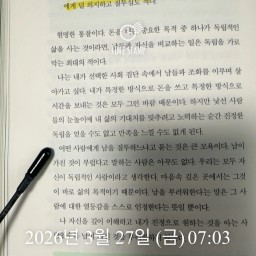 에게 덜 의지하고 질투심도 적다.
현명한 통찰이다. 돈을 중요한 목적 중 하나가 독립적인
삶을 사는 것이라면, 남들과 자신을 비교하는 일은 독립을 가로
막는 최대의 적이다.
나는 내가 선택한 사회 집단 속에서 남들과 조화를 이루며 살
아가고 싶다. 내가 원하는 방식으로 돈을 쓰고 원하는 방식으로
시간을 보내는 것은 모두 그런 바람 때문이다. 하지만 낯선 사람
들의 눈높이에 내 삶의 기대치를 맞추려고 노력하는 순간 진정한
독립을 얻을 수도 없고 만족을 느낄 수도 없게 된다.
어떤 사람에게 남을 질투하느냐고 묻는 것은 큰 모욕이다. 남이
가진 것이 부럽다고 말하는 사람은 아무도 없다. 우리는 모두 자
신이 독립적인 사람이라고 생각한다. 마음속 깊은 곳에서는 그것
이 바로 삶의 목적이기 때문이다. 남을 부러워한다는 말은 그 사
람에 대한 열등감을 스스로 인정한다는 뜻일 뿐이다.
나 자신을 깊이 이해하고 내가 진정으로 원하는 것을 아는 사
2026년 3월 27일 (금) 07:03